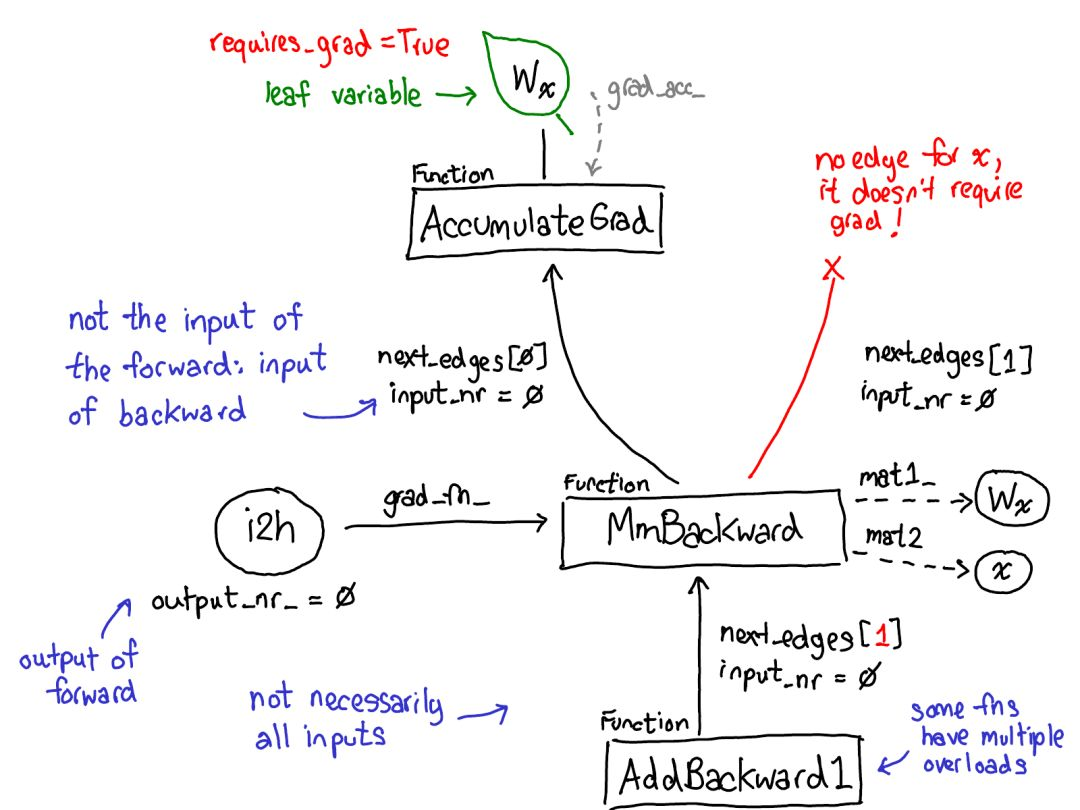 requires_grad = True
leaf variable
Wx
grad_acc_
Function
AccumulateGrad
no edge for x,
it doesn't require
grad!
x
not the input of
the forward: input
of backward
next_edges[0]
input_nr = 0
next_edges[1]
input_nr = 0
i2h
grad_fn_
output_nr_ = 0
Function
MmBackward
mat1_
Wx
mat2
x
output of
forward
not necessarily
all inputs
next_edges[1]
input_nr = 0
Function
AddBackward1
some fns
have multiple
overloads